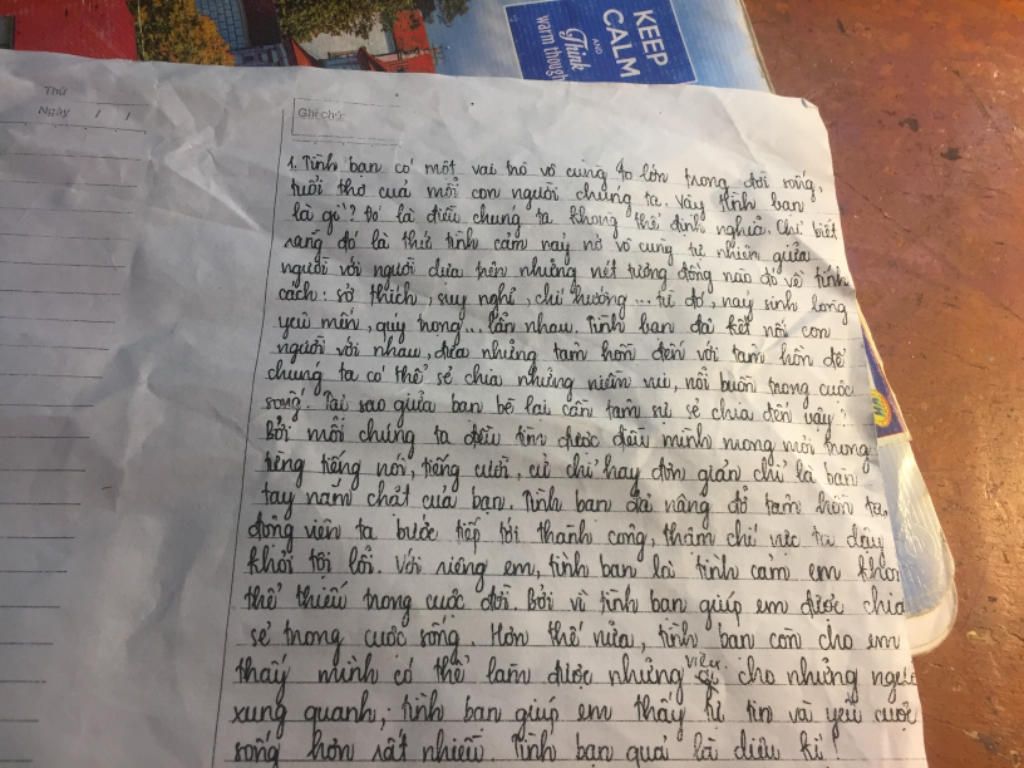 KEEP
CALM
AND
Think
warm though
Thứ
Ngày / /
Ghi chú:
1. Tình bạn có một vai trò vô cùng to lớn trong đời sống,
tuổi thơ của mỗi con người chúng ta. Vậy tình bạn
là gì? Đó là điều chúng ta không thể định nghĩa. Chỉ biết
rằng đó là thứ tình cảm nảy nở vô cùng tự nhiên giữa
người với người dựa trên những nét tương đồng nào đó về tính
cách: sở thích, suy nghĩ, chí hướng... từ đó, nảy sinh lòng
yêu mến, quý trọng... lẫn nhau. Tình bạn đã kết nối con
người với nhau, đưa những tâm hồn đến với tâm hồn để
chúng ta có thể sẻ chia những niềm vui, nỗi buồn trong cuộc
sống. Tại sao giữa bạn bè lại cần tâm sự sẻ chia đến vậy?
Bởi mỗi chúng ta đều tìm được điều mình mong mỏi trong
từng tiếng nói, tiếng cười, cử chỉ hay đơn giản chỉ là bàn
tay nắm chặt của bạn. Tình bạn đã nâng đỡ tâm hồn ta,
động viên ta bước tiếp tới thành công, thậm chí vực ta dậy
khỏi tội lỗi. Với riêng em, tình bạn là tình cảm em khôn
thể thiếu trong cuộc đời. Bởi vì tình bạn giúp em được chia
sẻ trong cuộc sống. Hơn thế nữa, tình bạn còn cho em
thấy mình có thể làm được những việc cho những ngườ
xung quanh, tình bạn giúp em thấy tự tin và yêu cuộc
sống hơn rất nhiều. Tình bạn quả là diệu kì!